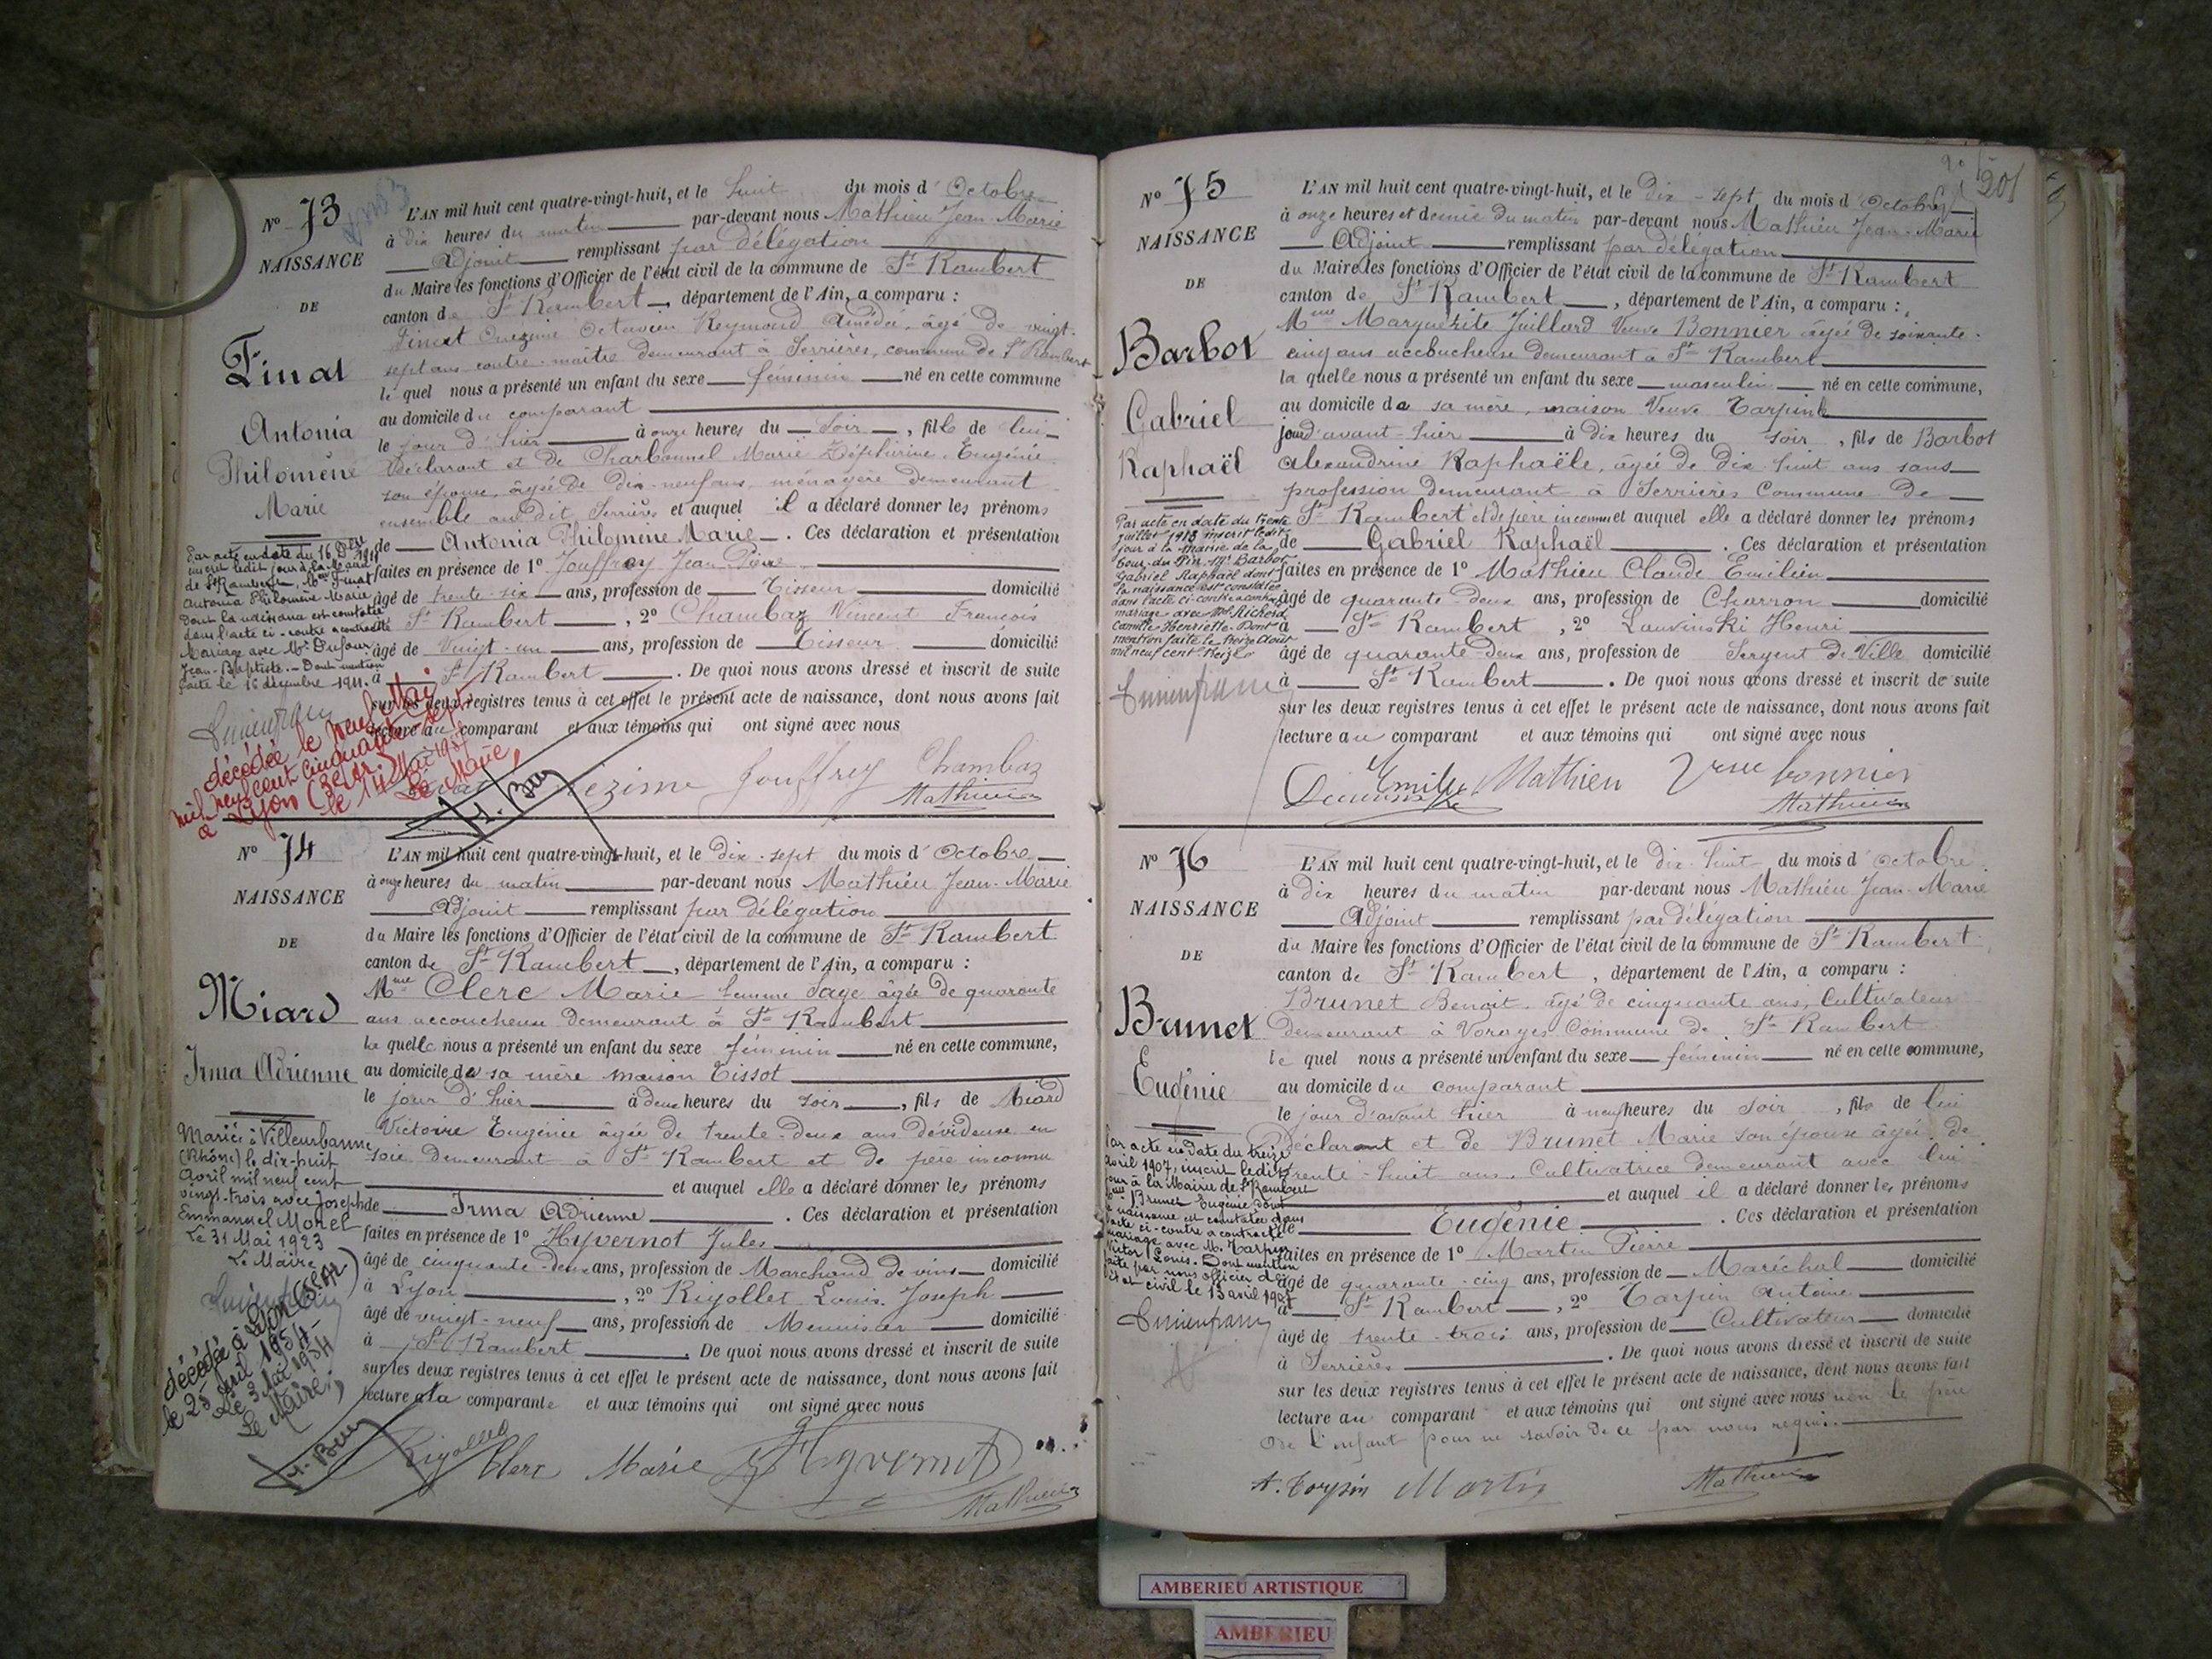 N° 73
NAISSANCE
DE
Finat
Antonia
Philomène
Marie
Par acte en date du 16 Dbre 1911
inscrit ledit jour à la Mairie
de St Rambert, Mlle Finat
Antonia Philomène Marie
dont la naissance est constatée
dans l'acte ci-contre a contracté
Mariage avec Mr Dufour
Jean-Baptiste. Dont mention
faite le 16 décembre 1911.
décédée le neuf Mai
mil neuf cent cinquante sept
à Lyon
le 14 Mai 1957
Le Maire,
L'AN mil huit cent quatre-vingt-huit, et le huit du mois d'Octobre
à dix heures du matin par-devant nous Mathieu Jean-Marie
Adjoint remplissant par délégation
du Maire les fonctions d'Officier de l'état civil de la commune de St Rambert
canton de St Rambert, département de l'Ain, a comparu :
Finat Onezime Octavien Reymond Amédée, âgé de vingt-
sept ans contre-maître demeurant à Serrières, commune de St Rambert
le quel nous a présenté un enfant du sexe féminin né en cette commune
au domicile du comparant
le jour d'hier à onze heures du soir, fille de lui
déclarant et de Charbonnel Marie Zéphirine Eugénie
son épouse, âgée de dix-neuf ans, ménagère demeurant
ensemble au dit Serrières et auquel il a déclaré donner les prénoms
de Antonia Philomène Marie. Ces déclaration et présentation
faites en présence de 1° Jouffroy Jean Pierre
âgé de trente-six ans, profession de Tisseur domicilié
St Rambert, 2° Chambaz Vincent François
âgé de vingt-un ans, profession de Tisseur domicilié
à St Rambert. De quoi nous avons dressé et inscrit de suite
sur les deux registres tenus à cet effet le présent acte de naissance, dont nous avons fait
lecture au comparant et aux témoins qui ont signé avec nous
Jouffrey Chambaz
Mathieu
N° 74
NAISSANCE
DE
Miard
Irma Adrienne
Mariée à Villeurbanne
(Rhône) le dix-huit
Avril mil neuf cent
vingt-trois avec Joseph
Emmanuel Morel
Le 31 Mai 1923
Le Maire
décédée à Lyon
le 25 Avril 1954
Le 3 Mai 1954
Le Maire,
L'AN mil huit cent quatre-vingt-huit, et le dix-sept du mois d'Octobre
à onze heures du matin par-devant nous Mathieu Jean-Marie
Adjoint remplissant par délégation
du Maire les fonctions d'Officier de l'état civil de la commune de St Rambert
canton de St Rambert, département de l'Ain, a comparu :
Mme Clerc Marie femme Sage âgée de quarante
ans accoucheuse demeurant à St Rambert
la quelle nous a présenté un enfant du sexe féminin né en cette commune,
au domicile de sa mère maison Tissot
le jour d'hier à deux heures du soir, fils de Miard
Victoire Eugénie âgée de trente-deux ans dévideuse en
soie demeurant à St Rambert et de père inconnu
et auquel elle a déclaré donner les prénoms
de Irma Adrienne. Ces déclaration et présentation
faites en présence de 1° Hyvernot Jules
âgé de cinquante-deux ans, profession de Marchand de vins domicilié
à Lyon, 2° Rigollet Louis Joseph
âgé de vingt-neuf ans, profession de Menuisier domicilié
à St Rambert. De quoi nous avons dressé et inscrit de suite
sur les deux registres tenus à cet effet le présent acte de naissance, dont nous avons fait
lecture à la comparante et aux témoins qui ont signé avec nous
Rigollet Clerc Marie Hyvernot
Mathieu
201
N° 75
NAISSANCE
DE
Barbot
Gabriel
Raphaël
Par acte en date du trente
juillet 1913 inscrit ledit
jour à la mairie de la
Tour-du-Pin, Mr Barbot
Gabriel Raphaël dont
la naissance est constatée
dans l'acte ci-contre a contracté
mariage avec Mlle Richerd
Camille Henriette. Dont
mention faite le treize Août
mil neuf cent treize
L'AN mil huit cent quatre-vingt-huit, et le dix-sept du mois d'Octobre
à onze heures et demie du matin par-devant nous Mathieu Jean-Marie
Adjoint remplissant par délégation
du Maire les fonctions d'Officier de l'état civil de la commune de St Rambert
canton de St Rambert, département de l'Ain, a comparu :
Mme Marguerite Juillard Veuve Bonnier âgée de soixante-
cinq ans accoucheuse demeurant à St Rambert
la quelle nous a présenté un enfant du sexe masculin né en cette commune,
au domicile de sa mère, maison Veuve Tarpin
jour d'avant-hier à dix heures du soir, fils de Barbot
Alexandrine Raphaële, âgée de dix-huit ans sans
profession demeurant à Serrières Commune de
St Rambert et de père inconnu et auquel elle a déclaré donner les prénoms
de Gabriel Raphaël. Ces déclaration et présentation
faites en présence de 1° Mathieu Claude Emilien
âgé de quarante-deux ans, profession de Charron domicilié
à St Rambert, 2° Lauvinski Henri
âgé de quarante-deux ans, profession de Sergent de Ville domicilié
à St Rambert. De quoi nous avons dressé et inscrit de suite
sur les deux registres tenus à cet effet le présent acte de naissance, dont nous avons fait
lecture au comparant et aux témoins qui ont signé avec nous
Emile Mathieu Veuve bonnier
Mathieu
N° 76
NAISSANCE
DE
Brunet
Eugénie
Par acte en date du treize
avril 1907, inscrit ledit
jour à la Mairie de St Rambert
Brunet Eugénie dont
la naissance est constatée dans
l'acte ci-contre a contracté
mariage avec M. Tarpin
Victor Louis. Dont mention
faite par nous officier de
l'état civil le 13 avril 1907
L'AN mil huit cent quatre-vingt-huit, et le dix-huit du mois d'Octobre
à dix heures du matin par-devant nous Mathieu Jean-Marie
Adjoint remplissant par délégation
du Maire les fonctions d'Officier de l'état civil de la commune de St Rambert
canton de St Rambert, département de l'Ain, a comparu :
Brunet Benoit âgé de cinquante ans, Cultivateur
demeurant à Vorages Commune de St Rambert
le quel nous a présenté un enfant du sexe féminin né en cette commune,
au domicile du comparant
le jour d'avant hier à neuf heures du soir, fils de lui
déclarant et de Brunet Marie son épouse âgée de
trente-huit ans, Cultivatrice demeurant avec lui
et auquel il a déclaré donner les prénoms
Eugénie. Ces déclaration et présentation
faites en présence de 1° Martin Pierre
âgé de quarante-cinq ans, profession de Maréchal domicilié
à St Rambert, 2° Tarpin Antoine
âgé de trente-trois ans, profession de Cultivateur domicilié
à Serrières. De quoi nous avons dressé et inscrit de suite
sur les deux registres tenus à cet effet le présent acte de naissance, dont nous avons fait
lecture au comparant et aux témoins qui ont signé avec nous non le père
de l'enfant pour ne savoir de ce par nous requis.
A. Tarpin Martin Mathieu
AMBERIEU ARTISTIQUE
AMBERIEU